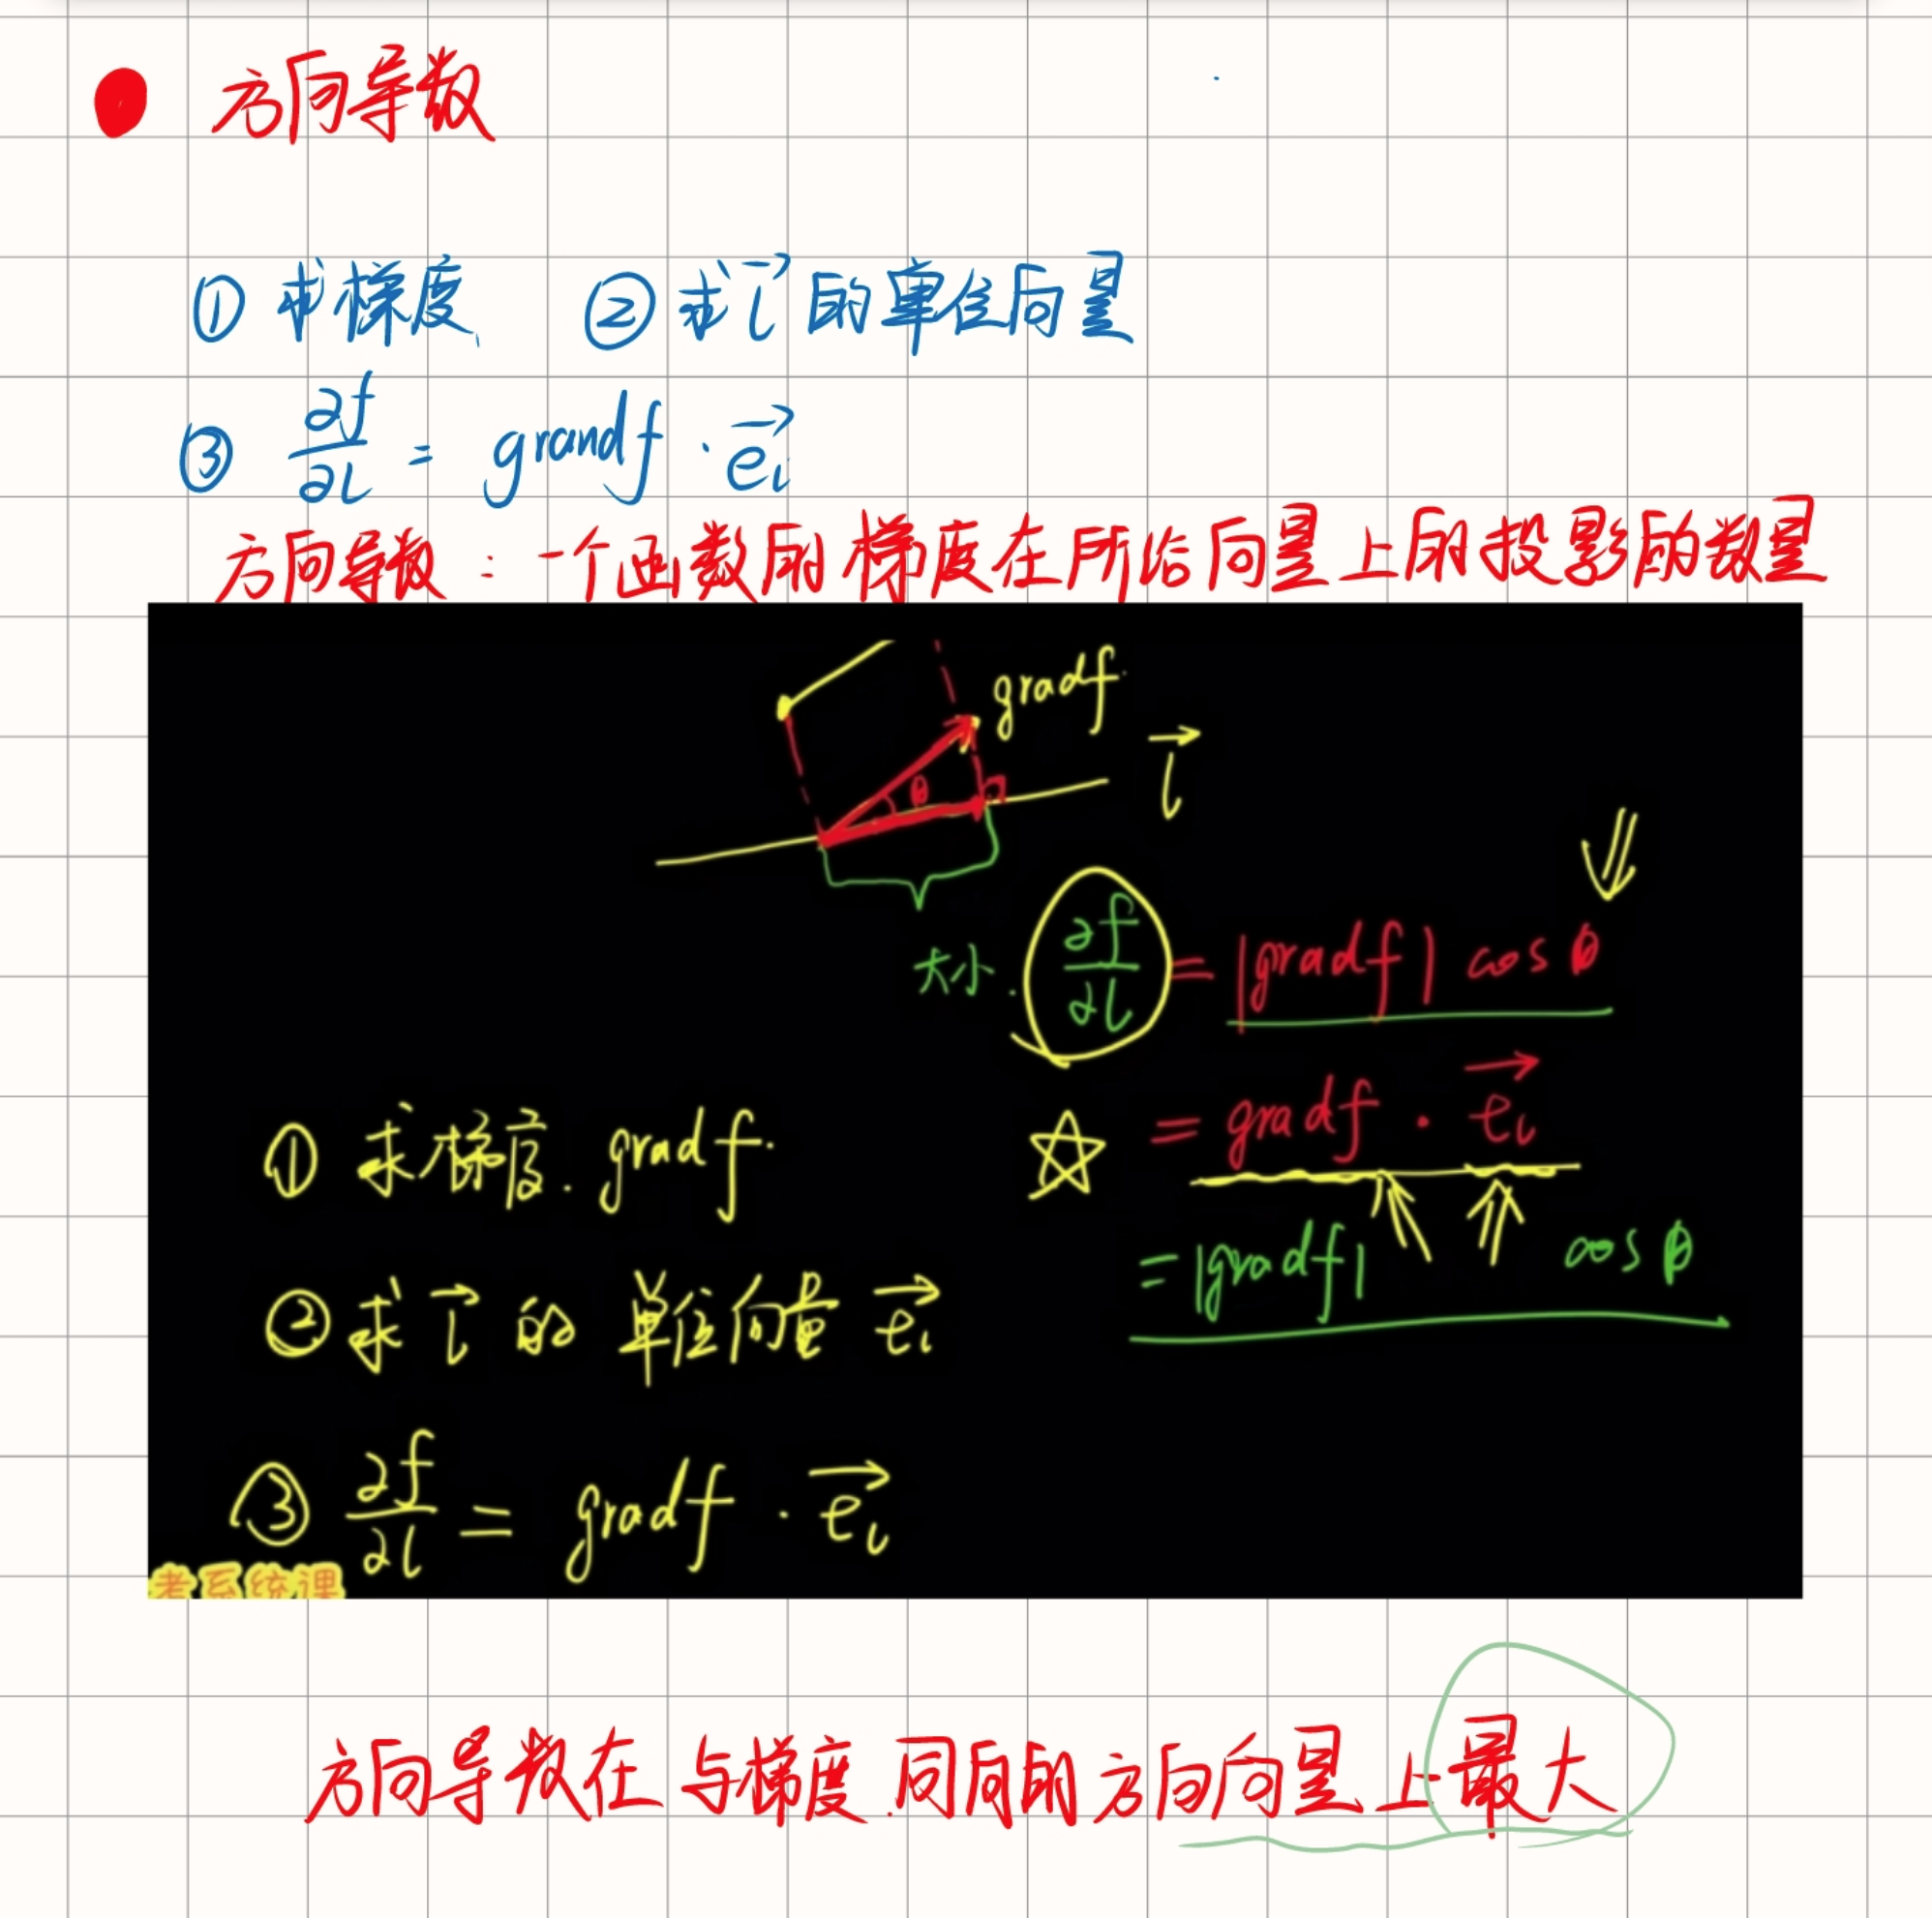 方向导数
① 求梯度、 ② 求 l⃗ 的单位向量
③ ∂f/∂l = grandf · e⃗l
方向导数:一个函数的梯度在所给向量上的投影的数量
gradf
l⃗
θ
大小. ∂f/∂l = |gradf| cos θ
= gradf · e⃗l
① 求梯度. gradf.
= |gradf| cos θ
② 求 l⃗ 的 单位向量 e⃗l
③ ∂f/∂l = gradf · e⃗l
考系统课
方向导数在与梯度同向的方向向量上最大